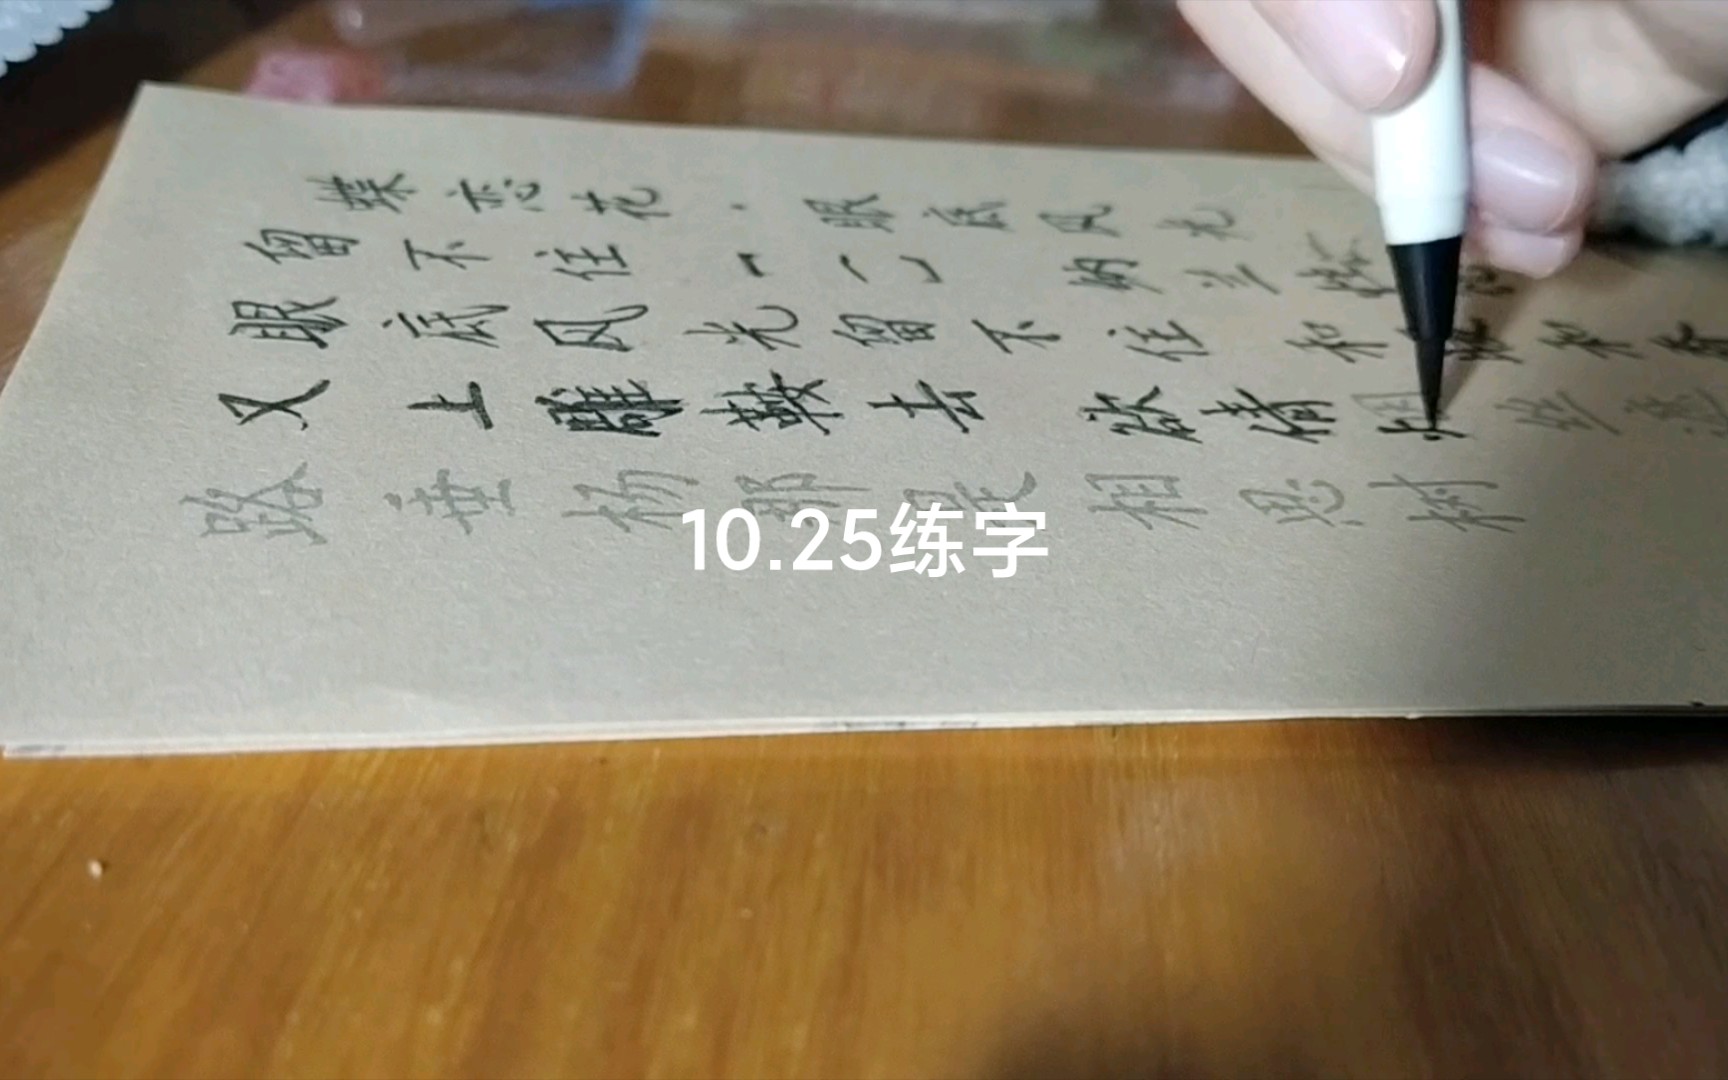 蝶恋花·眼底风光
留不住 纳兰
眼底风光留不住 和暖和香
又上雕鞍去 欲倩烟丝遮
路 垂杨那是相思树
10.25练字